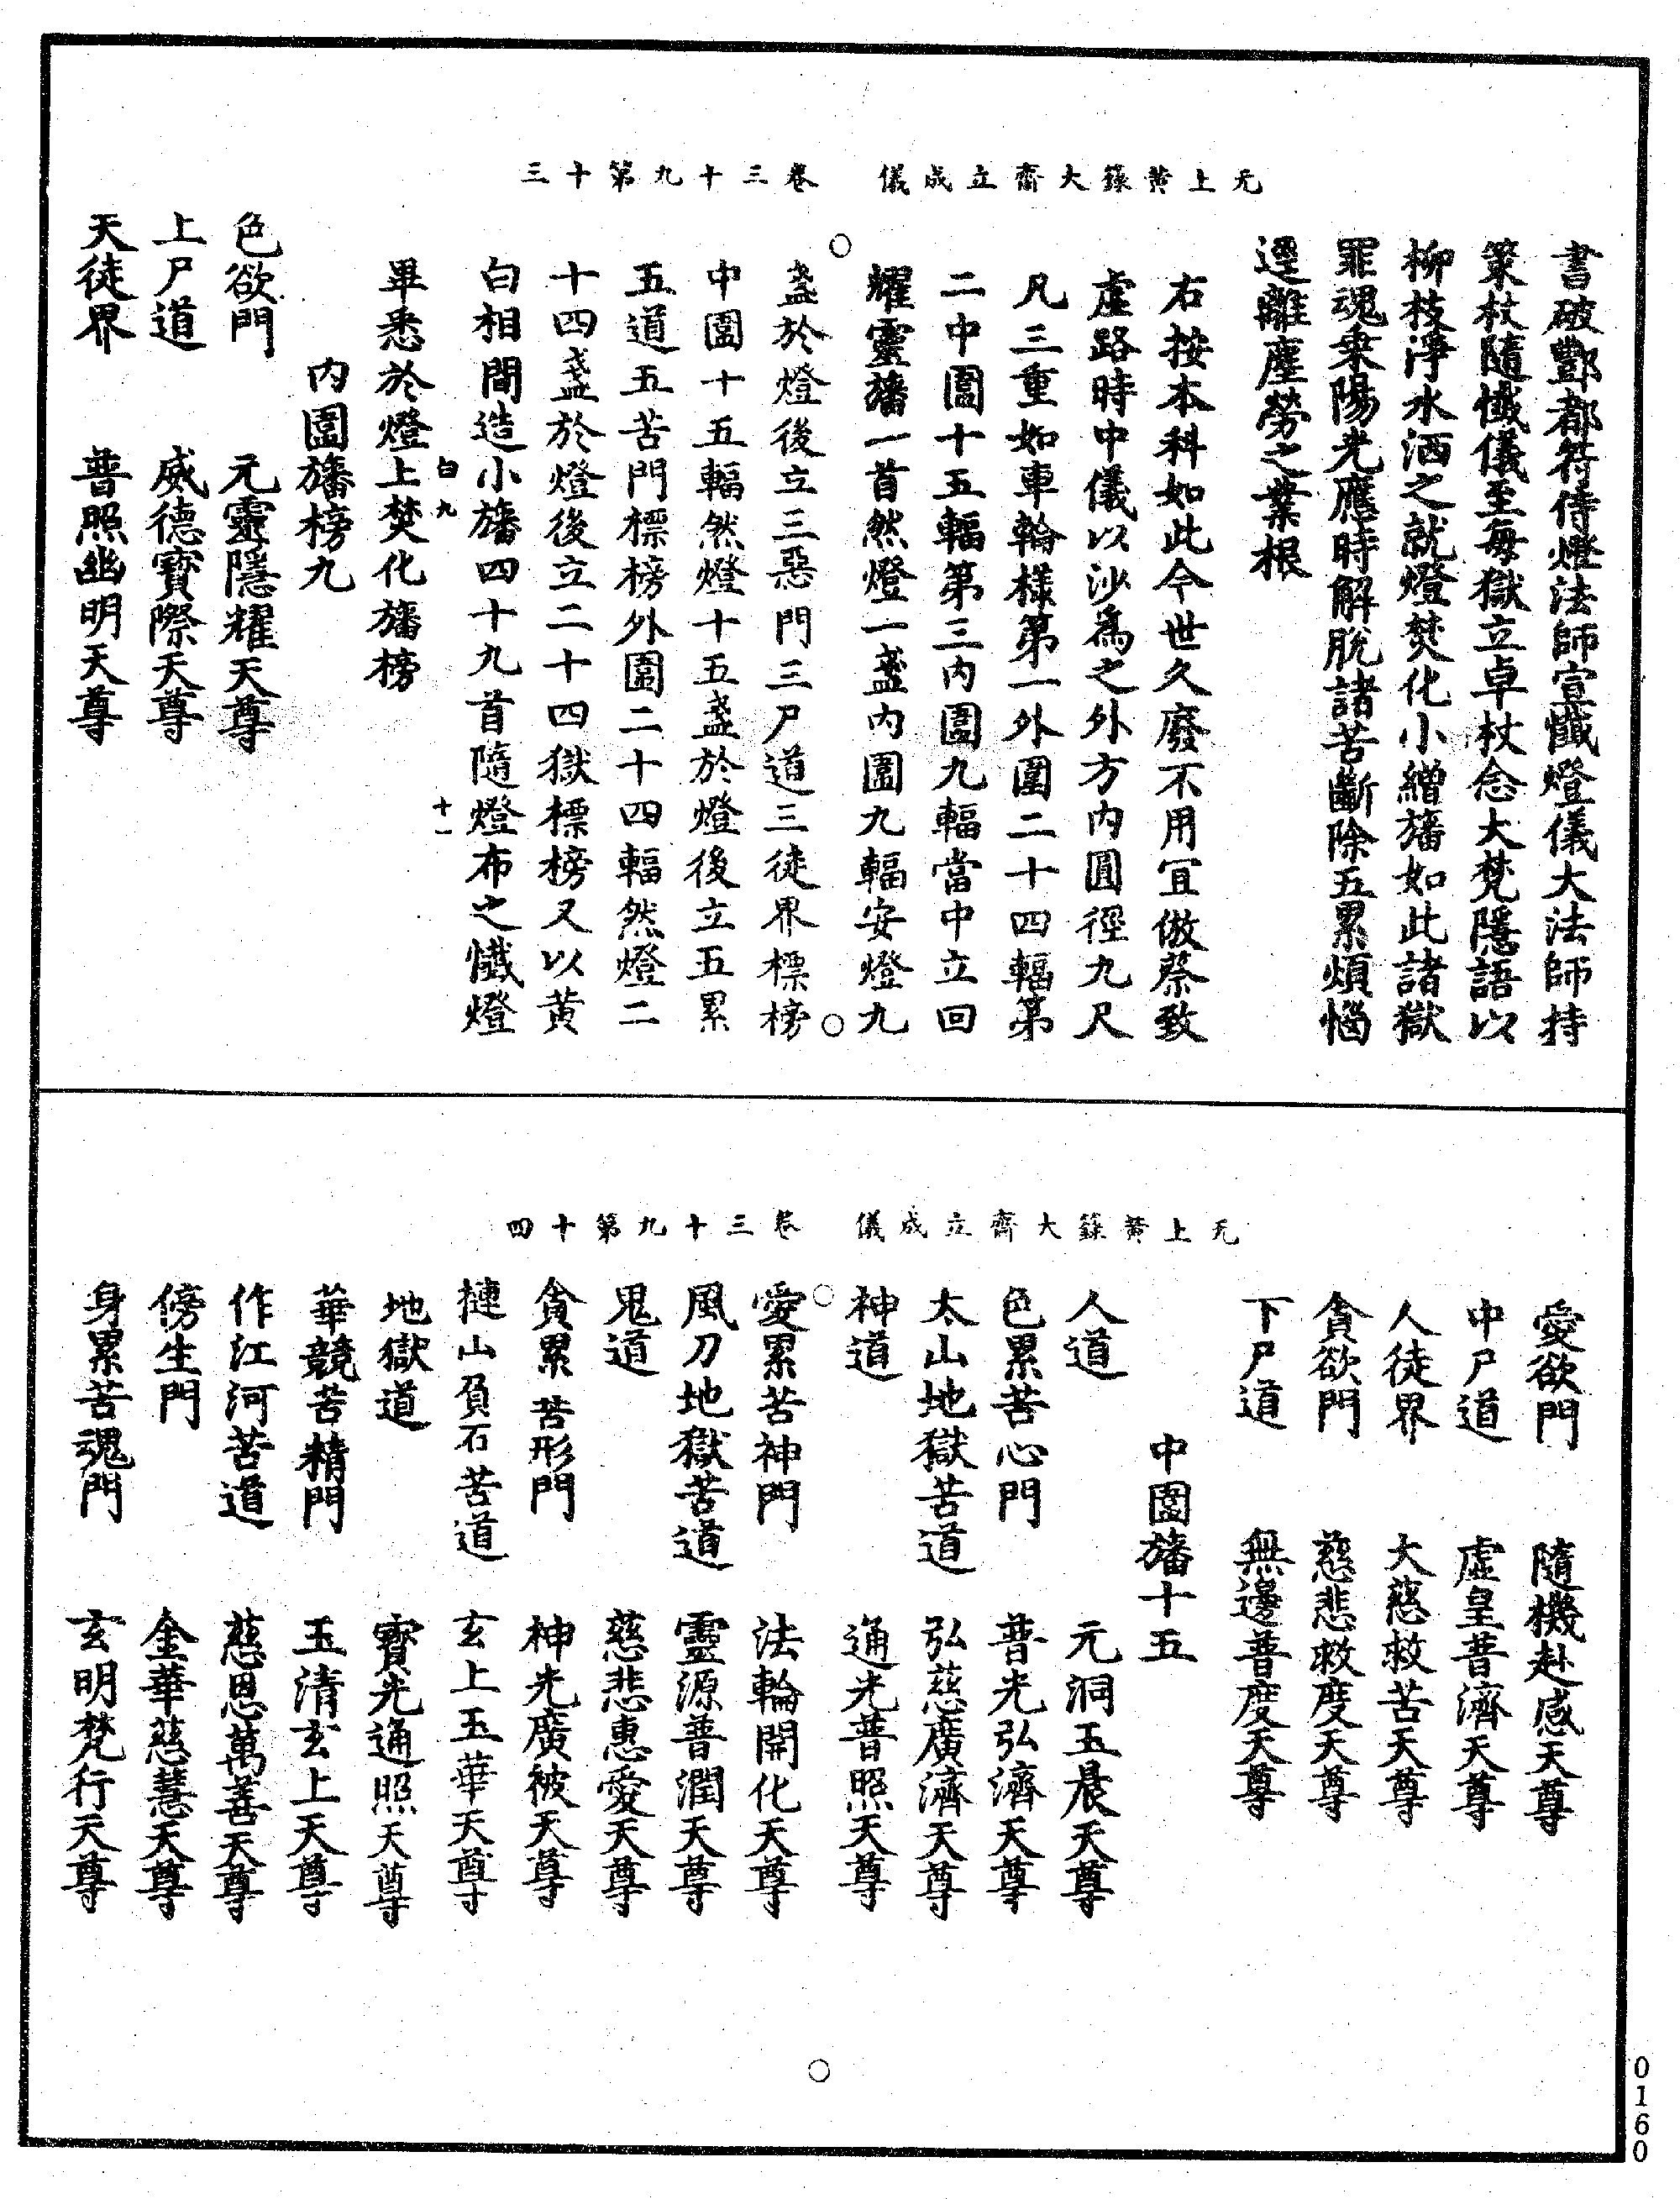 无上黃籙大齋立成儀　卷三十九第十三
書破酆都符侍燈法師宣懺燈儀大法師持
策杖隨懺儀至每獄立卓杖念大梵隱語以
柳枝淨水洒之就燈焚化小繒旛如此諸獄
罪魂乗陽光應時解脫諸苦斷除五累煩惱
逕離塵勞之業根
右按本科如此今世久廢不用宜倣蔡致
虛路時中儀以沙爲之外方内圓徑九尺
凡三重如車輪樣第一外圍二十四輻第
二中圍十五輻第三内圍九輻當中立回
耀靈旛一首然燈一盞内圍九輻安燈九
盞於燈後立三惡門三尸道三徒界標榜
中圍十五輻然燈十五盞於燈後立五累
五道五苦門標榜外圍二十四輻然燈二
十四盞於燈後立二十四獄標榜又以黃
白相間造小旛四十九首隨燈布之懺燈
白九　十一
畢悉於燈上焚化旛榜
内圍旛榜九
色欲門　元靈隱耀天尊
上尸道　威德寳際天尊
天徒界　普照幽明天尊
无上黃籙大齋立成儀　卷三十九第十四
愛欲門　隨機赴感天尊
中尸道　虛皇普濟天尊
人徒界　大慈救苦天尊
貪欲門　慈悲救度天尊
下尸道　無邊普度天尊
中圍旛十五
人道　元洞玉晨天尊
色累苦心門　普光弘濟天尊
太山地獄苦道　弘慈廣濟天尊
神道　通光普照天尊
愛累苦神門　法輪開化天尊
風刀地獄苦道　靈源普潤天尊
鬼道　慈悲惠愛天尊
貪累苦形門　神光廣被天尊
摙山負石苦道　玄上玉華天尊
地獄道　寳光通照天尊
華競苦精門　玉清玄上天尊
作江河苦道　慈恩萬善天尊
傍生門　金華慈慧天尊
身累苦魂門　玄明梵行天尊
0160